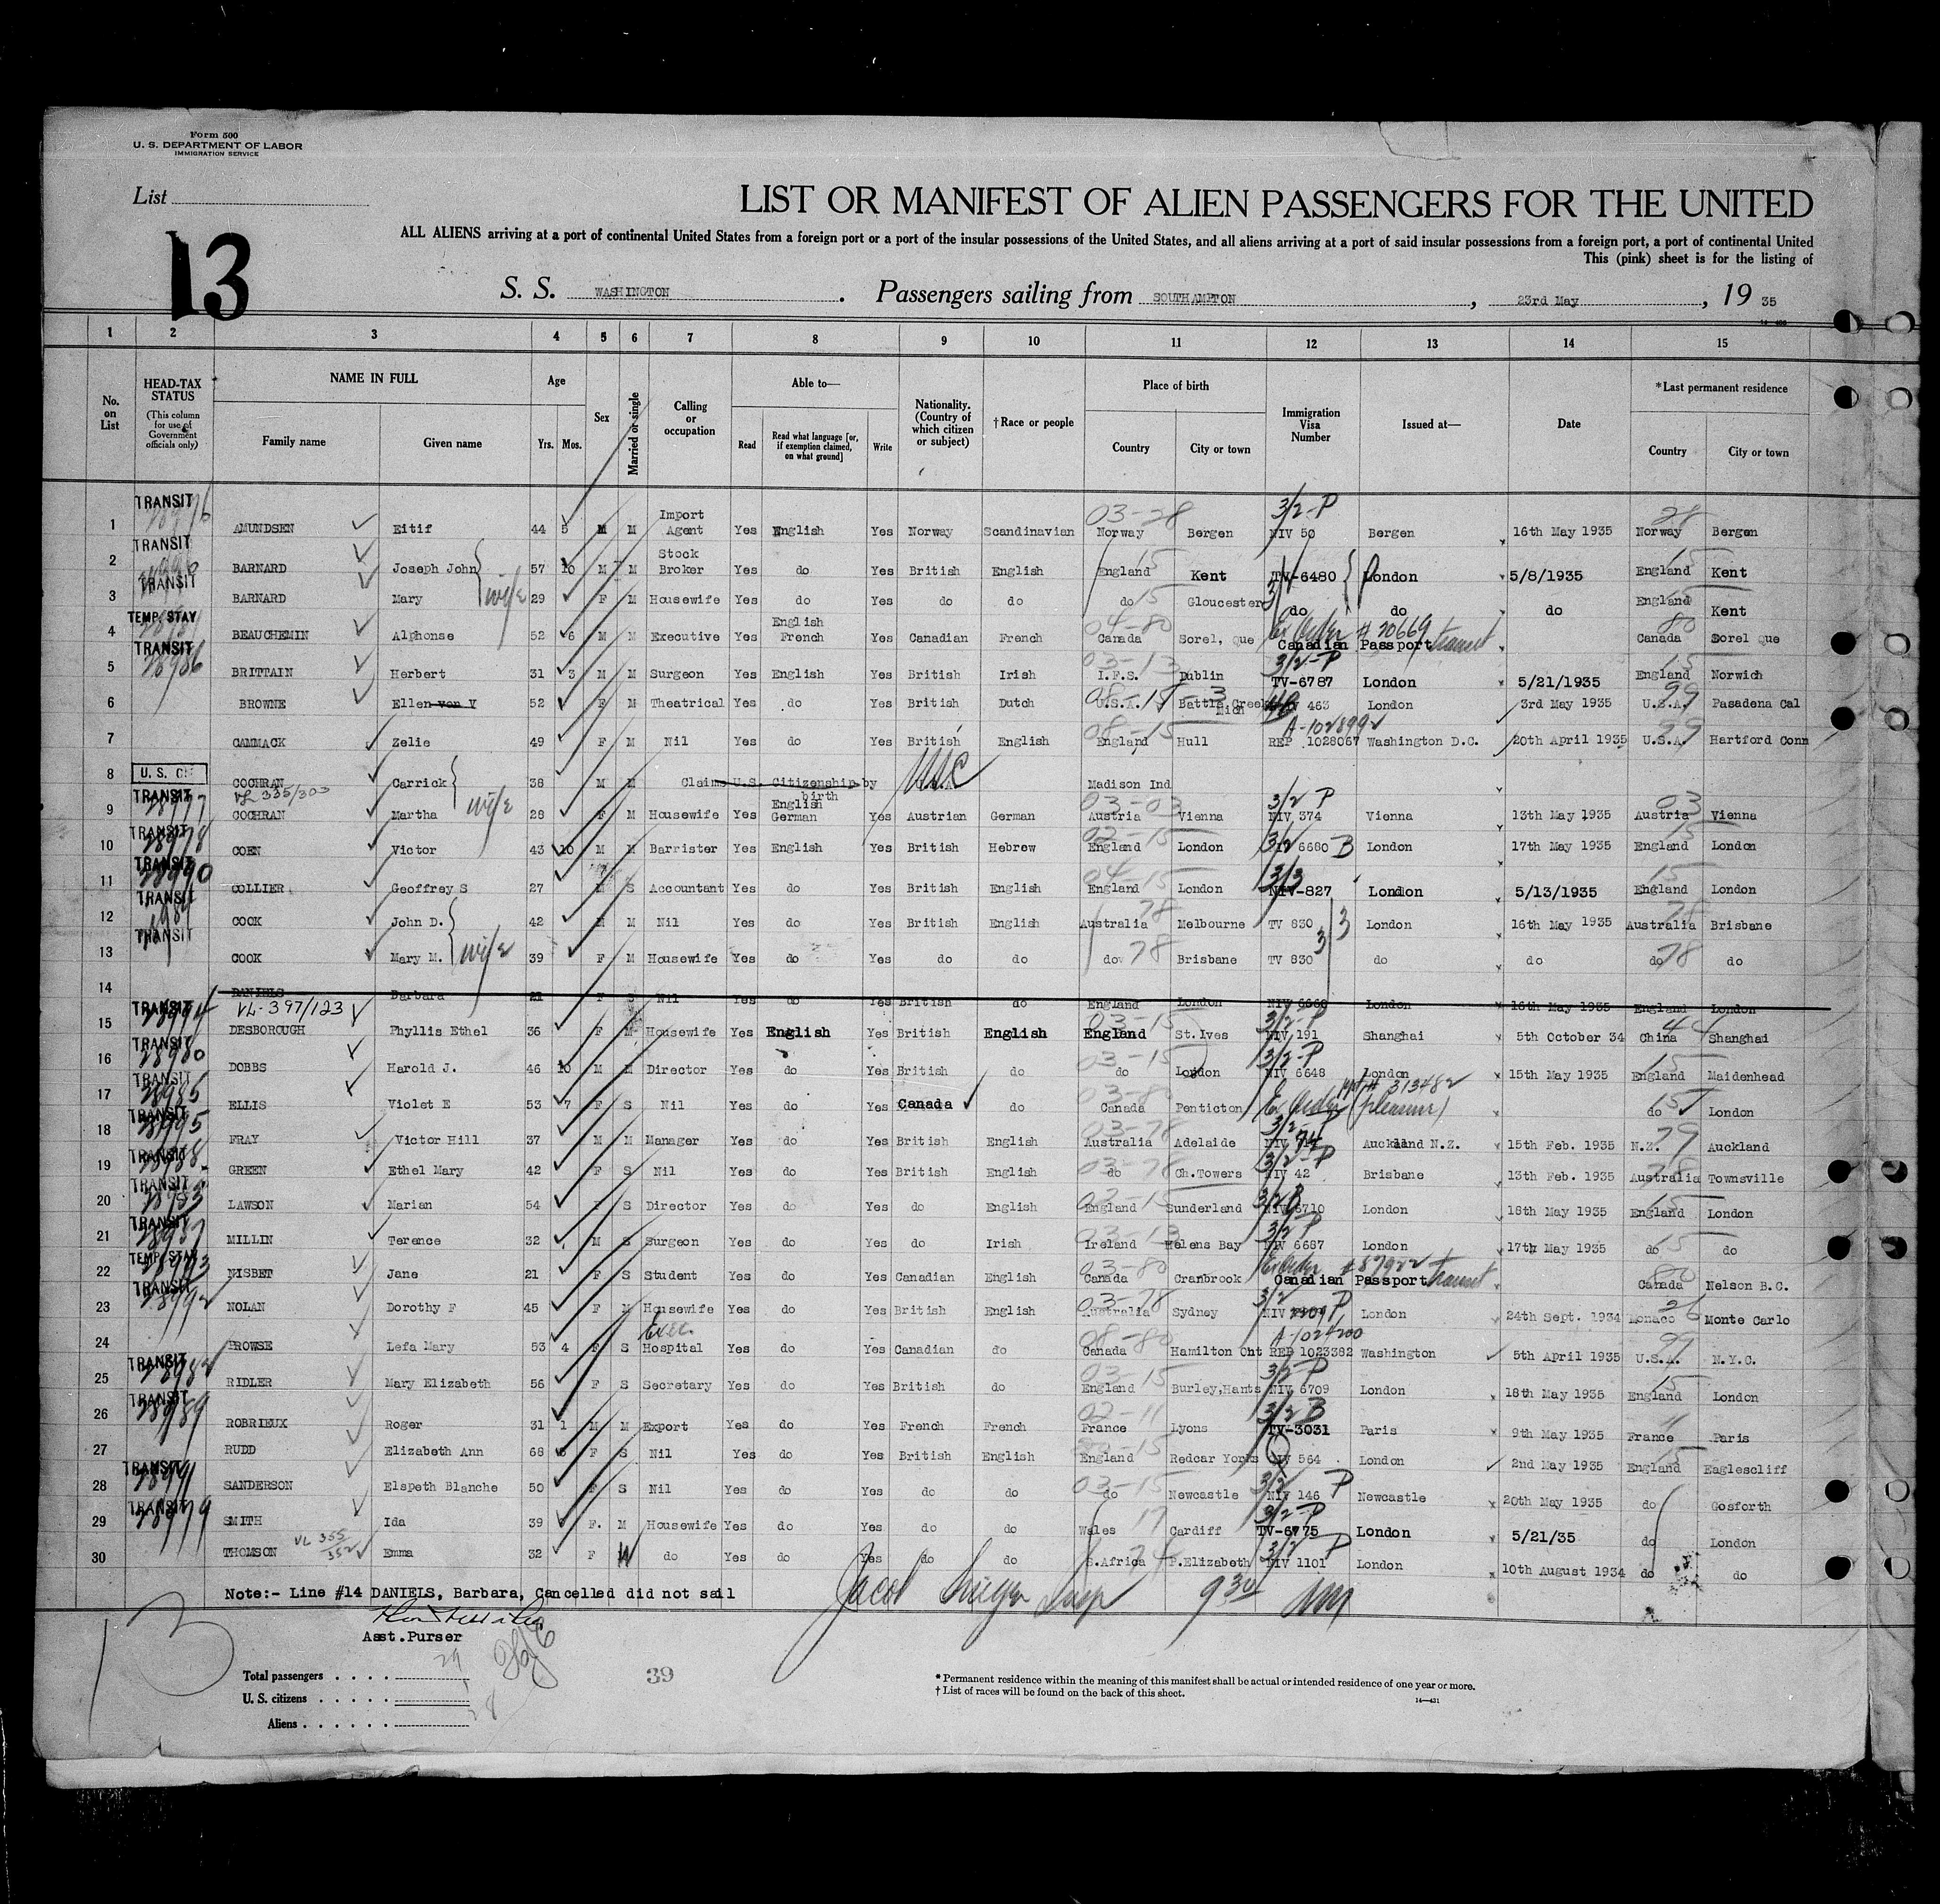 Form 500
U. S. DEPARTMENT OF LABOR
IMMIGRATION SERVICE
List
13
LIST OR MANIFEST OF ALIEN PASSENGERS FOR THE UNITED
ALL ALIENS arriving at a port of continental United States from a foreign port or a port of the insular possessions of the United States, and all aliens arriving at a port of said insular possessions from a foreign port, a port of continental United
This (pink) sheet is for the listing of
S. S. WASHINGTON. Passengers sailing from SOUTHAMPTON, 23rd May, 19 35
1 2 3 4 5 6 7 8 9 10 11 12 13 14 15
No. on List
HEAD-TAX STATUS (This column for use of Government officials only)
NAME IN FULL Family name Given name
Age Yrs. Mos.
Sex
Married or single
Calling or occupation
Able to— Read Read what language [or, if exemption claimed, on what ground] Write
Nationality. (Country of which citizen or subject)
† Race or people
Place of birth Country City or town
Immigration Visa Number
Issued at—
Date
* Last permanent residence Country City or town
1 TRANSIT AMUNDSEN Eitif 44 5 M M Import Agent Yes English Yes Norway Scandinavian 03-28 Norway Bergen 3/2-P NIV 50 Bergen 16th May 1935 28 Norway Bergen
2 TRANSIT BARNARD Joseph John 57 10 M M Stock Broker Yes do Yes British English 15 England Kent TV-6480 London 5/8/1935 15 England Kent
3 TRANSIT BARNARD Mary wife 29 F M Housewife Yes do Yes do do 15 do Gloucester do do do England Kent
4 TEMP. STAY BEAUCHEMIN Alphonse 52 6 M M Executive Yes English French Yes Canadian French 04-80 Canada Sorel, Que Ex Order # 20669 Canadian Passport transit 80 Canada Sorel Que
5 TRANSIT 28986 BRITTAIN Herbert 31 3 M M Surgeon Yes English Yes British Irish 03-13 I.F.S. Dublin 3/2-P TV-6787 London 5/21/1935 15 England Norwich
6 BROWNE Ellen von V 52 F M Theatrical Yes do Yes British Dutch 08-15 U.S.A. Battle Creek Mich 463 London 3rd May 1935 99 U.S.A. Pasadena Cal
7 CAMMACK Zelie 49 F M Nil Yes do Yes British English 08-15 England Hull A-1028992 REP 1028067 Washington D.C. 20th April 1935 99 U.S.A. Hartford Conn
8 U.S. CIT COCHRAN Carrick 38 M M Claims U.S. Citizenship by birth Madison Ind
9 TRANSIT 28977 VL 335/303 COCHRAN Martha wife 28 F M Housewife Yes English German Yes Austrian German 03-03 Austria Vienna 3/2 P NIV 374 Vienna 13th May 1935 03 Austria Vienna
10 TRANSIT 28978 COEN Victor 43 10 M M Barrister Yes English Yes British Hebrew 02-15 England London 3/2 6680 B London 17th May 1935 15 England London
11 TRANSIT 28990 COLLIER Geoffrey S 27 M S Accountant Yes do Yes British English 04-15 England London 3/3 NIV-827 London 5/13/1935 15 England London
12 TRANSIT COOK John D. 42 M M Nil Yes do Yes British English 78 Australia Melbourne TV 830 3 London 16th May 1935 78 Australia Brisbane
13 TRANSIT COOK Mary M. wife 39 F M Housewife Yes do Yes do do 78 do Brisbane TV 830 3 do do 78 do do
14 DANIELS Barbara 21 F S Nil Yes do Yes British do England London NIV 6668 London 16th May 1935 England London
15 TRANSIT VL-397/123 DESBOROUGH Phyllis Ethel 36 F M Housewife Yes English Yes British English 03-15 England St.Ives 3/2-P NIV 191 Shanghai 5th October 34 44 China Shanghai
16 TRANSIT 28980 DOBBS Harold J. 46 10 M M Director Yes do Yes British do 03-15 do London 3/2-P NIV 6648 London 15th May 1935 15 England Maidenhead
17 TRANSIT 28985 ELLIS Violet E 53 7 F S Nil Yes do Yes Canada do 03-80 Canada Penticton Ex Order 313482 (pleasure) 15 do London
18 TRANSIT 28995 FRAY Victor Hill 37 M M Manager Yes do Yes British English 03-78 Australia Adelaide 3/2-P NIV 74 Auckland N.Z. 15th Feb. 1935 79 N.Z. Auckland
19 TRANSIT 28988 GREEN Ethel Mary 42 F S Nil Yes do Yes British English 03-78 do Ch.Towers 3/2-P NIV 42 Brisbane 13th Feb. 1935 78 Australia Townsville
20 TRANSIT 28983 LAWSON Marian 54 F S Director Yes do Yes do English 02-15 England Sunderland 3/2 B NIV 6710 London 18th May 1935 15 England London
21 TRANSIT 28987 MILLIN Terence 32 M S Surgeon Yes do Yes do Irish 03-13 Ireland Helens Bay 3/2 P NIV 6687 London 17th May 1935 15 do do
22 TEMP. STAY NISBET Jane 21 F S Student Yes do Yes Canadian English 03-80 Canada Cranbrook Ex Order #87922 Canadian Passport transit 80 Canada Nelson B.C.
23 TRANSIT 28992 NOLAN Dorothy F 45 F M Housewife Yes do Yes British English 03-78 Australia Sydney 3/2 P NIV 2909 London 24th Sept. 1934 26 Monaco Monte Carlo
24 BROWSE Lefa Mary 53 4 F S Exec. Hospital Yes do Yes Canadian do 08-80 Canada Hamilton Ont A-1024200 REP 1023382 Washington 5th April 1935 99 U.S.A. N.Y.C.
25 TRANSIT 28982 RIDLER Mary Elizabeth 56 F S Secretary Yes do Yes British do 03-15 England Burley,Hants 3/2-P NIV 6709 London 18th May 1935 15 England London
26 TRANSIT 28989 ROBRIEUX Roger 31 1 M M Export Yes do Yes French French 02-11 France Lyons 3/2 B TV-3031 Paris 9th May 1935 11 France Paris
27 RUDD Elizabeth Ann 68 F S Nil Yes do Yes British English 15 England Redcar Yorks QIV 564 London 2nd May 1935 15 England Eaglescliff
28 TRANSIT 28991 SANDERSON Elspeth Blanche 50 F S Nil Yes do Yes do do 03-15 do Newcastle 3/2 P NIV 146 Newcastle 20th May 1935 do Gosforth
29 TRANSIT 28979 SMITH Ida 39 F. M Housewife Yes do Yes do do 17 Wales Cardiff 3/2-P TV-6775 London 5/21/35 do London
30 VL 355/352 THOMSON Emma 32 F W do Yes do Yes do do 74 S.Africa P.Elizabeth 3/2 P NIV 1101 London 10th August 1934 do do
Note:- Line #14 DANIELS, Barbara, Cancelled did not sail
Jacob Insp 930 AM
Asst.Purser
13
Total passengers 29
U. S. citizens 1
Aliens 28
39
* Permanent residence within the meaning of this manifest shall be actual or intended residence of one year or more.
† List of races will be found on the back of this sheet.
14—431